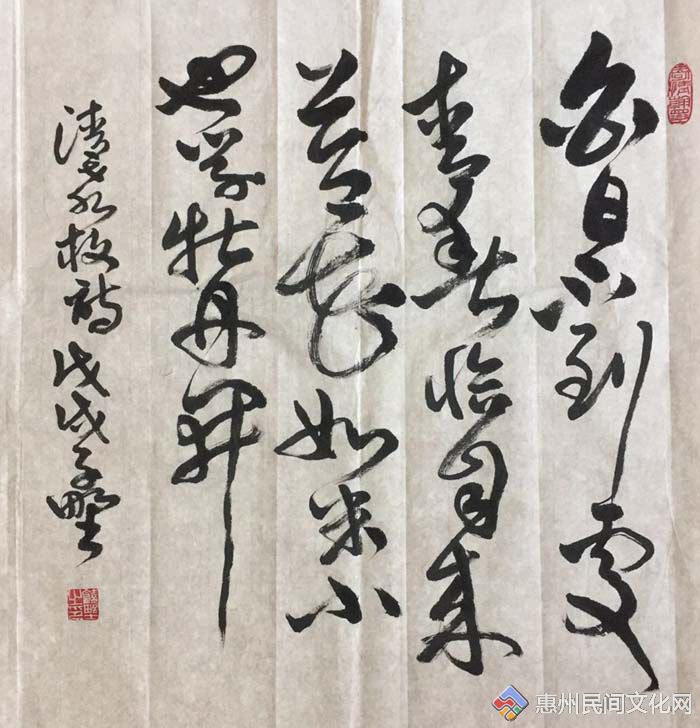 白日不到處
青春恰自来
苔花如米小
也学牡丹開
清袁枚詩 戊戌子野
惠州民间文化网